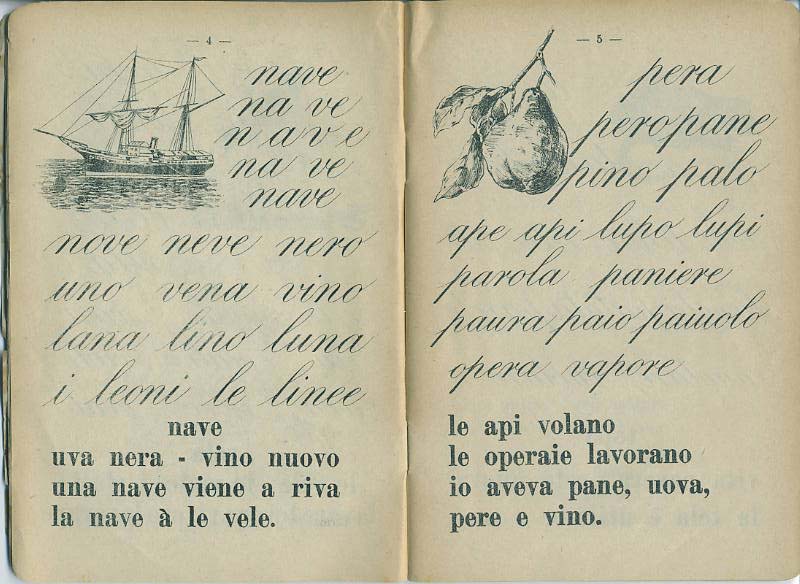 — 4 —
nave
na ve
nave
na ve
nave
nove neve nero
uno vena vino
lana lino luna
i leoni le linee
nave
uva nera - vino nuovo
una nave viene a riva
la nave à le vele.
— 5 —
pera
pero pane
pino palo
ape api lupo lupi
parola paniere
paura paio paiuolo
opera vapore
le api volano
le operaie lavorano
io aveva pane, uova,
pere e vino.